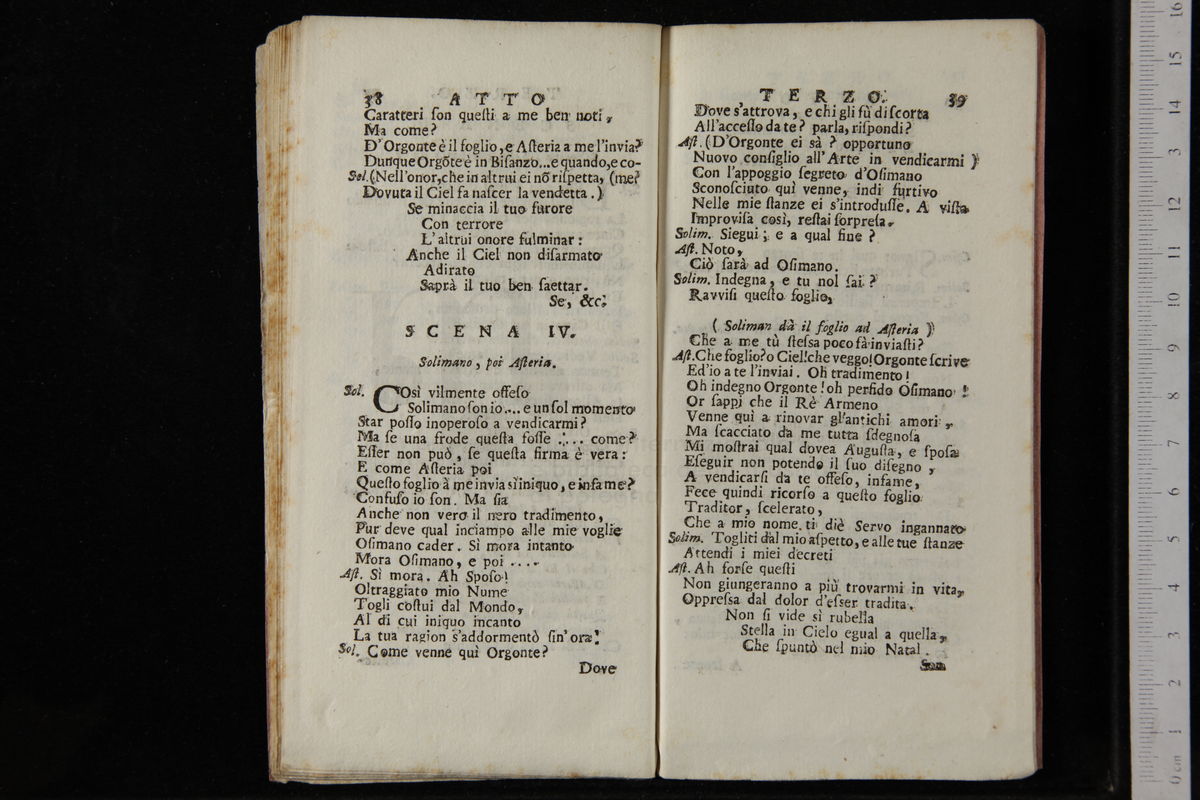 38 ATTO
Caratteri ſon queſti a me ben noti,
Ma come?
D'Orgonte è il foglio, e Aſteria a me l'invia?
Dunque Orgōte è in Biſanzo...e quando, e co-
Sol. (Nell'onor, che in altrui ei nō riſpetta, (me?
Dovuta il Ciel fa naſcer la vendetta.)
Se minaccia il tuo furore
Con terrore
L'altrui onore fulminar:
Anche il Ciel non diſarmato
Adirato
Saprà il tuo ben ſaettar.
Se, &c.
SCENA IV.
Solimano, poi Aſteria.
Sol. COsì vilmente offeſo
Solimano ſon io.... e un ſol momento
Star poſſo inoperoſo a vendicarmi?
Ma ſe una frode queſta foſſe .... come?
Eſſer non può, ſe queſta firma è vera:
E come Aſteria poi
Queſto foglio à me invia sì iniquo, e infame?
Confuſo io ſon. Ma ſia
Anche non vero il nero tradimento,
Pur deve qual inciampo alle mie voglie
Oſimano cader. Sì mora intanto
Mora Oſimano, e poi ....
Aſt. Sì mora. Ah Spoſo!
Oltraggiato mio Nume
Togli coſtui dal Mondo,
Al di cui iniquo incanto
La tua ragion s'addormentò ſin' ora!
Sol. Come venne quì Orgonte?
Dove
TERZO. 39
Dove s'attrova, e chi gli fù di ſcorta
All'acceſſo da te? parla, riſpondi?
Aſt. (D'Orgonte ei sà? opportuno
Nuovo conſiglio all'Arte in vendicarmi)
Con l'appoggio ſegreto d'Oſimano
Sconoſciuto quì venne, indi furtivo
Nelle mie ſtanze ei s'introduſſe. A viſta
Improviſa così, reſtai ſorpreſa.
Solim. Siegui; e a qual fine?
Aſt. Noto,
Ciò ſarà ad Oſimano.
Solim. Indegna, e tu nol ſai?
Ravviſi queſto foglio,
(Soliman dà il foglio ad Aſteria)
Che a me tù ſteſsa poco fà inviaſti?
Aſt. Che foglio? o Ciel! che veggo! Orgonte ſcrive
Ed'io a te l'inviai. Oh tradimento!
Oh indegno Orgonte! oh perfido Oſimano!
Or ſappi che il Rè Armeno
Venne quì a rinovar gl'antichi amori,
Ma ſcacciato da me tutta ſdegnoſa
Mi moſtrai qual dovea Auguſta, e ſpoſa
Eſeguir non potendo il ſuo diſegno,
A vendicarſi da te offeſo, infame,
Fece quindi ricorſo a queſto foglio
Traditor, ſcelerato,
Che a mio nome ti diè Servo ingannato
Solim. Togliti dal mio aſpetto, e alle tue ſtanze
Attendi i miei decreti
Aſt. Ah forſe queſti
Non giungeranno a più trovarmi in vita,
Oppreſsa dal dolor d'eſser tradita.
Non ſi vide sì rubella
Stella in Cielo egual a quella,
Che ſpuntò nel mio Natal.
Son